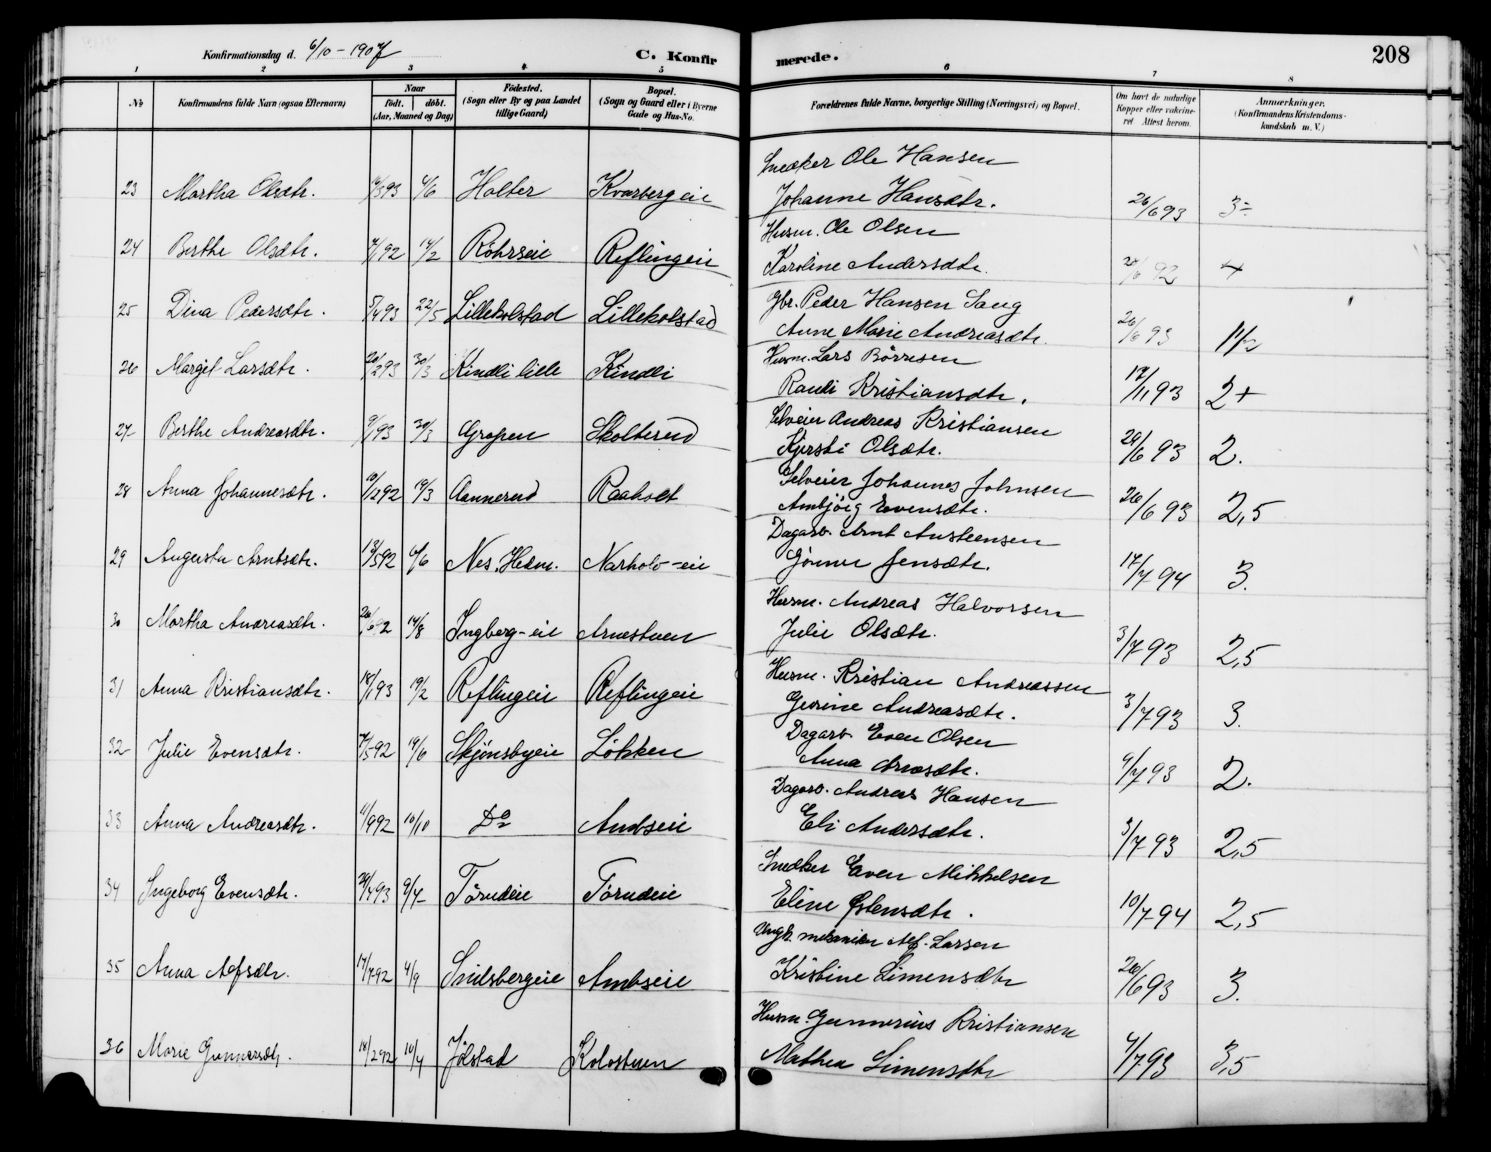 Konfirmationsdag d. 6/10 - 1907
C. Konfirmerede.
208
1 2 3 4 5 6 7 8
No
Konfirmandens fulde Navn (ogsaa Efternavn)
Naar
født. døbt.
(Aar, Maaned og Dag)
Fødested.
(Sogn eller By og paa Landet
tillige Gaard)
Bopæl.
(Sogn og Gaard eller i Byerne
Gade og Hus-No.
Forældrenes fulde Navne, borgerlige Stilling (Næringsvei) og Bopæl.
Om havt de naturlige
Kopper eller vakcine-
ret Attest herom.
Anmærkninger.
(Konfirmandens Kristendoms-
kundskab m. V.)
Snedker Ole Hansen
23 Martha Olsdtr. 93 4/6 Holter Kvarbergeie Johanne Hansdtr. 26/6 93 3-
Husm. Ole Olsen
24 Berthe Olsdtr. 92 14/2 Röhrseie Reflingeie Karoline Andersdtr. 92 +
Gbr. Peder Hansen Saug
25 Dina Pedersdtr. 5/4 93 22/5 Lillekolstad Lillekolstad Anne Marie Andreasdtr 26/6 93 1 1/2
Husm. Lars Börresen
26 Margit Larsdtr. 20/2 93 30/3 Kindli lille Kindli Randi Kristiansdtr. 17/11 93 2+
Selveier Andreas Kristiansen
27 Berthe Andreasdtr. 9/1 93 30/3 Gropen Skolterud Kjersti Olsdtr. 29/6 93 2.
Selveier Johannes Johnsen
28 Anna Johannesdtr. 10/12 92 19/3 Aannerud Raaholt Ambjörg Evensdtr. 26/6 93 2,5
Dagarb. Arnt Austeensen
29 Augusta Arntsdtr. 13/5 92 6/6 Nes, Hedm. Narholo-eie Jensdtr. 17/7 94 3.
Husm. Andreas Halvorsen
30 Martha Andreasdtr. 26/6 92 14/8 Ingberg-eie Arnestuen Julie Olsdtr. 3/7 93 2,5
Husm. Kristian Andreassen
31 Anna Kristiansdtr. 18/1 93 19/2 Reflingeie Reflingeie Gurine Andreasdtr. 3/7 93 3.
Dagarb. Even Olsen
32 Julie Evensdtr. 7/5 92 19/6 Skjönsbyeie Lökken Anna Arnesdtr. 4/7 93 2.
Dagarb. Andreas Hansen
33 Anna Andreasdtr. 11/9 92 10/10 Do Andseie Eli Andersdtr. 3/7 93 2,5
Snedker Even Mikkelsen
34 Ingeborg Evensdtr. 29/4 93 9/7 Törudeie Törudeie Eline Östensdtr. 10/7 94 2,5
Ungk. Alf. Larsen
35 Anna Alfsdtr. 17/7 92 4/9 Smilsbergeie Andseie Kristine Simensdtr 26/6 93 3.
Husm. Gunnerius Kristiansen
36 Marie Gunnersdtr. 14/2 92 10/4 Jölstad Kolostuen Mathea Simensdtr 4/7 93 3,5